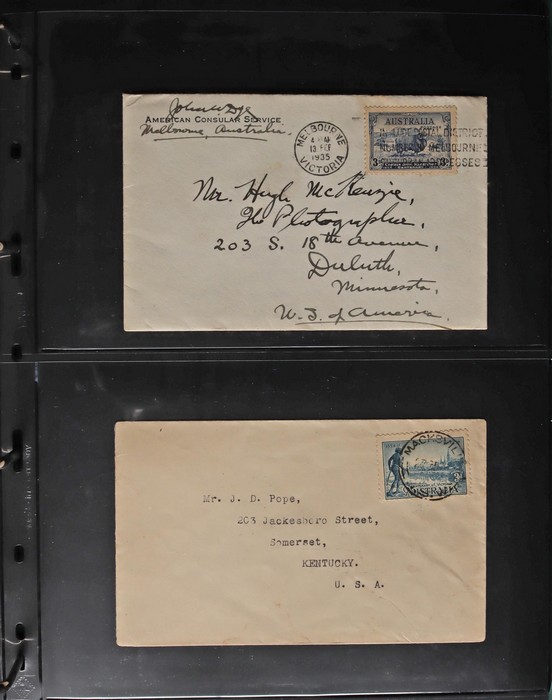 John W Dye
AMERICAN CONSULAR SERVICE
Melbourne, Australia.
MELBOURNE
4 PM
13 FEB
1935
VICTORIA
AUSTRALIA
POSTAL DISTRICT
NUMBER IN MELBOURNE
SUBURBAN ADDRESSES
3 3
Mr. Hugh McKenzie,
The Photographer,
203 S. 18th avenue,
Duluth,
Minnesota,
U. S. of America.
MACKSVIL
AUSTRALIA
2
Mr. J. D. Pope,
203 Jackesboro Street,
Somerset,
KENTUCKY.
U. S. A.